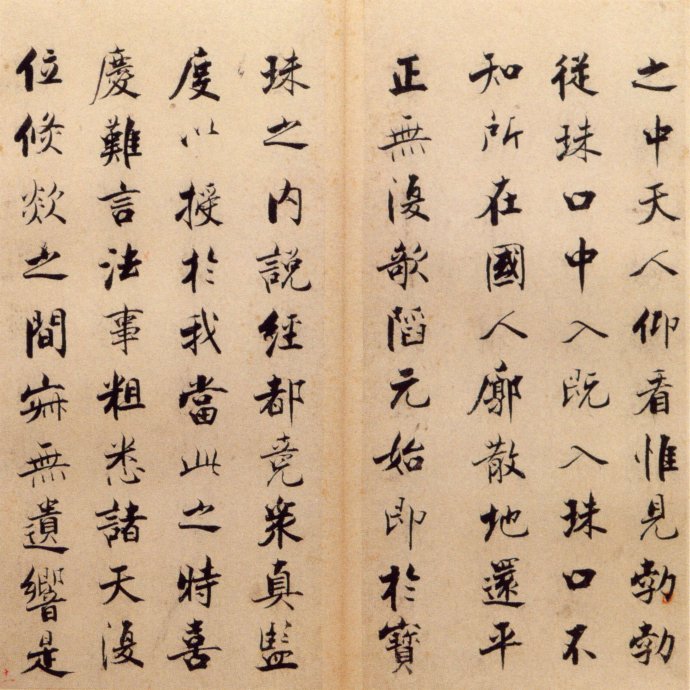 之中天人仰看惟見勃勃
從珠口中入既入珠口不
知所在國人廓散地還平
正無復欹陷元始即於寶
珠之内説經都竟衆真監
度以授於我當此之時喜
慶難言法事粗悉諸天復
位倐欻之間寂無遺響是